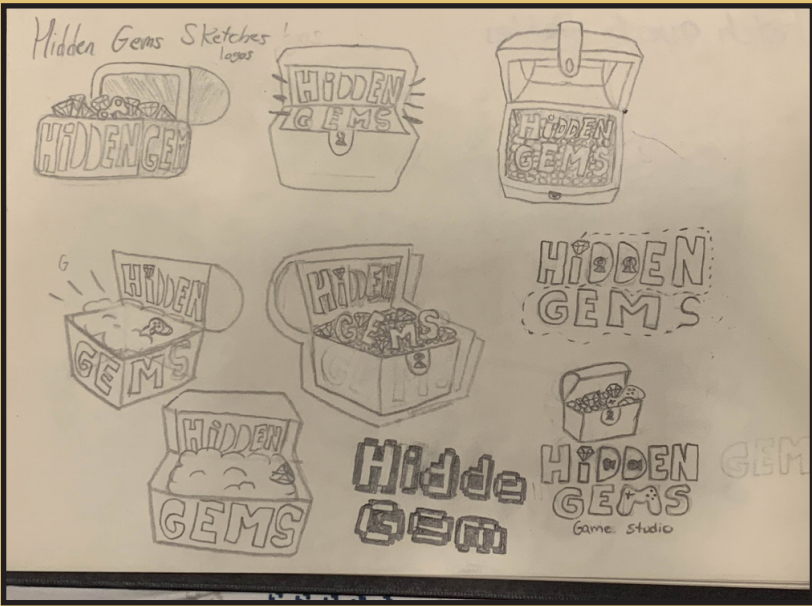 Hidden Gems Sketches
logos
HiDDEN GEM
HiDDEN
GEMS
HiDDEN
GEMS
G
HiDDEN
GEMS
HiDDEN
GEMS
HiDDEN
GEMS
HiDDEN
GEMS
Hidde
Gem
HiDDEN
GEMS
Game Studio
GEM